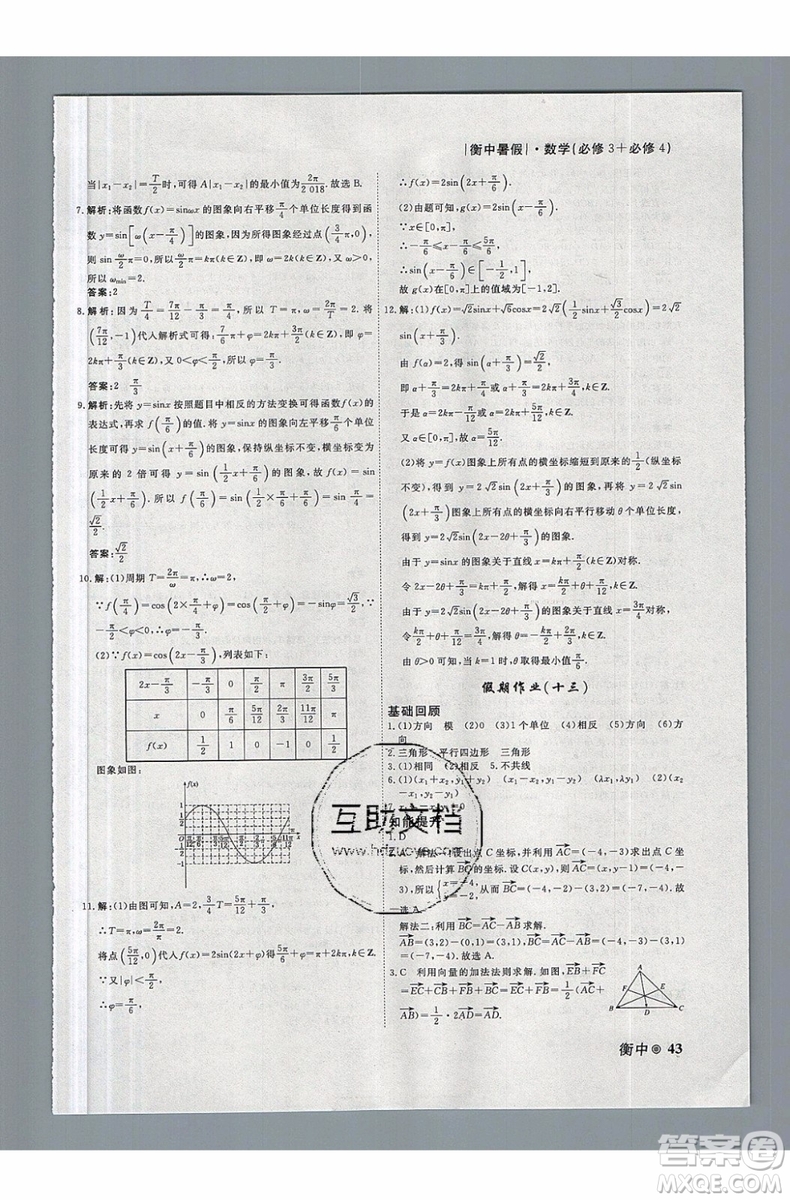 |衡中暑假|·数学(必修3+必修4)
当|x₁-x₂|=T/2时,可得A|x₁-x₂|的最小值为2π/2 018.故选B.
7.解析:将函数f(x)=sinωx的图象向右平移π/4个单位长度得到函
数y=sin[ω(x-π/4)]的图象,因为所得图象经过点(3π/4,0),
则sin π/2 ω=0,所以π/2 ω=kπ(k∈Z),即ω=2k(k∈Z),又ω>0,所
以ωmin=2.
答案:2
8.解析:因为T/4=7π/12-π/3=π/4,所以T=π,ω=2π/T=2,将
(7π/12,-1)代入解析式可得:7π/6+φ=2kπ+3π/2(k∈Z)可得:
φ=2kπ+π/3(k∈Z),又0<φ<π/2,所以φ=π/3.
答案:2 π/3
9.解析:先将y=sinx按照题目中相反的方法变换可得函数f(x)的
表达式,再求f(π/6)的值.将y=sinx的图象向左平移π/6个单位
长度可得y=sin(x+π/6)的图象,保持纵坐标不变,横坐标变为
原来的2倍可得y=sin(1/2x+π/6)的图象,故f(x)=sin
(1/2x+π/6).所以f(π/6)=sin(1/2×π/6+π/6)=sin π/4=
√2/2.
答案:√2/2
10.解:(1)周期T=2π/ω=π,∴ω=2,
∵f(π/4)=cos(2×π/4+φ)=cos(π/2+φ)=-sinφ=√3/2,∵
-π/2<φ<0,∴φ=-π/3.
(2)∵f(x)=cos(2x-π/3),列表如下:
2x-π/3 -π/3 0 π/2 π 3π/2 5π/3
x 0 π/6 5π/12 2π/3 11π/12 π
f(x) 1/2 1 0 -1 0 1/2
图象如图:
f(x)
11.解:(1)由图可知,A=2,3/4T=5π/12+π/3=3π/4,
∴T=π,ω=2π/π=2,
将点(5π/12,0)代入f(x)=2sin(2x+φ)得5π/6+φ=π+2kπ,k∈Z.
∵又|φ|<π/2
∴φ=π/6,
∴f(x)=2sin(2x+π/6)
(2)由题可知,g(x)=2sin(x-π/6).
∵x∈[0,π],
∴-π/6≤x-π/6≤5π/6
∴sin(x-π/6)∈[-1/2,1],
故g(x)在[0,π]上的值域为[-1,2].
12.解:(1)f(x)=√2sinx+√6cosx=2√2(1/2sinx+√3/2cosx)=2√2
sin(x+π/3)
由f(α)=√2,得sin(α+π/3)=1/2
∴α+π/3=2kπ+π/6或α+π/3=2kπ+5π/6,k∈Z
于是α=2kπ-π/6或α=2kπ+π/2,k∈Z
又α∈[0,π],故α=π/2
(2)将y=f(x)图象上所有点的横坐标缩短到原来的1/2(纵坐标
不变),得到y=2√2sin(2x+π/3)的图象,再将y=2√2sin
(2x+π/3)图象上所有点的横坐标向右平行移动θ个单位长度,
得到y=2√2sin(2x-2θ+π/3)的图象.
由于y=sinx的图象关于直线x=kπ+π/2(k∈Z)对称.
令2x-2θ+π/3=kπ+π/2,解得x=kπ/2+θ+π/12,k∈Z
由于y=2√2sin(2x-2θ+π/3)的图象关于直线x=3π/4对称,
令kπ/2+θ+π/12=3π/4,解得θ=-kπ/2+2π/3,k∈Z.
由θ>0可知,当k=1时,θ取得最小值π/6.
假期作业(十三)
基础回顾
1.(1)方向 模 (2)0 (3)1个单位 (4)相反 (5)方向 (6)方
向
2.三角形 平行四边形 三角形
3.(1)相同 (2)相反 (2)0 5.不共线
6.(x₁+x₂,y₁+y₂) (x₁-x₂,y₁-y₂) (λx₁,λy₁) (x₂
-x₁,y₂-y₁)
知能提升
1.D
2.A 解法一:设出点C坐标,并利用AC=(-4,-3)求出点C坐
标,然后计算BC=(-7,-4).设C(x,y),则AC=(x,y-1)=(-4,
-3),所以{x=-4, y=-2,从而BC=(-4,-2)-(3,2)=(-7,-4).故
选A.
解法二:利用BC=AC-AB求解.
AB=(3,2)-(0,1)=(3,1),BC=AC-AB=(-4,-3)-(3,1)
=(-7,-4).故选A.
3.C 利用向量的加法法则求解.如图,EB+FC
=EC+CB+FB+BC=EC+FB=1/2(AC+AB)
=1/2·2AD=AD.
A
F E
B D C
互助文档
www.hdzuoye.com
衡中 43
答案圈
MXQE.COM